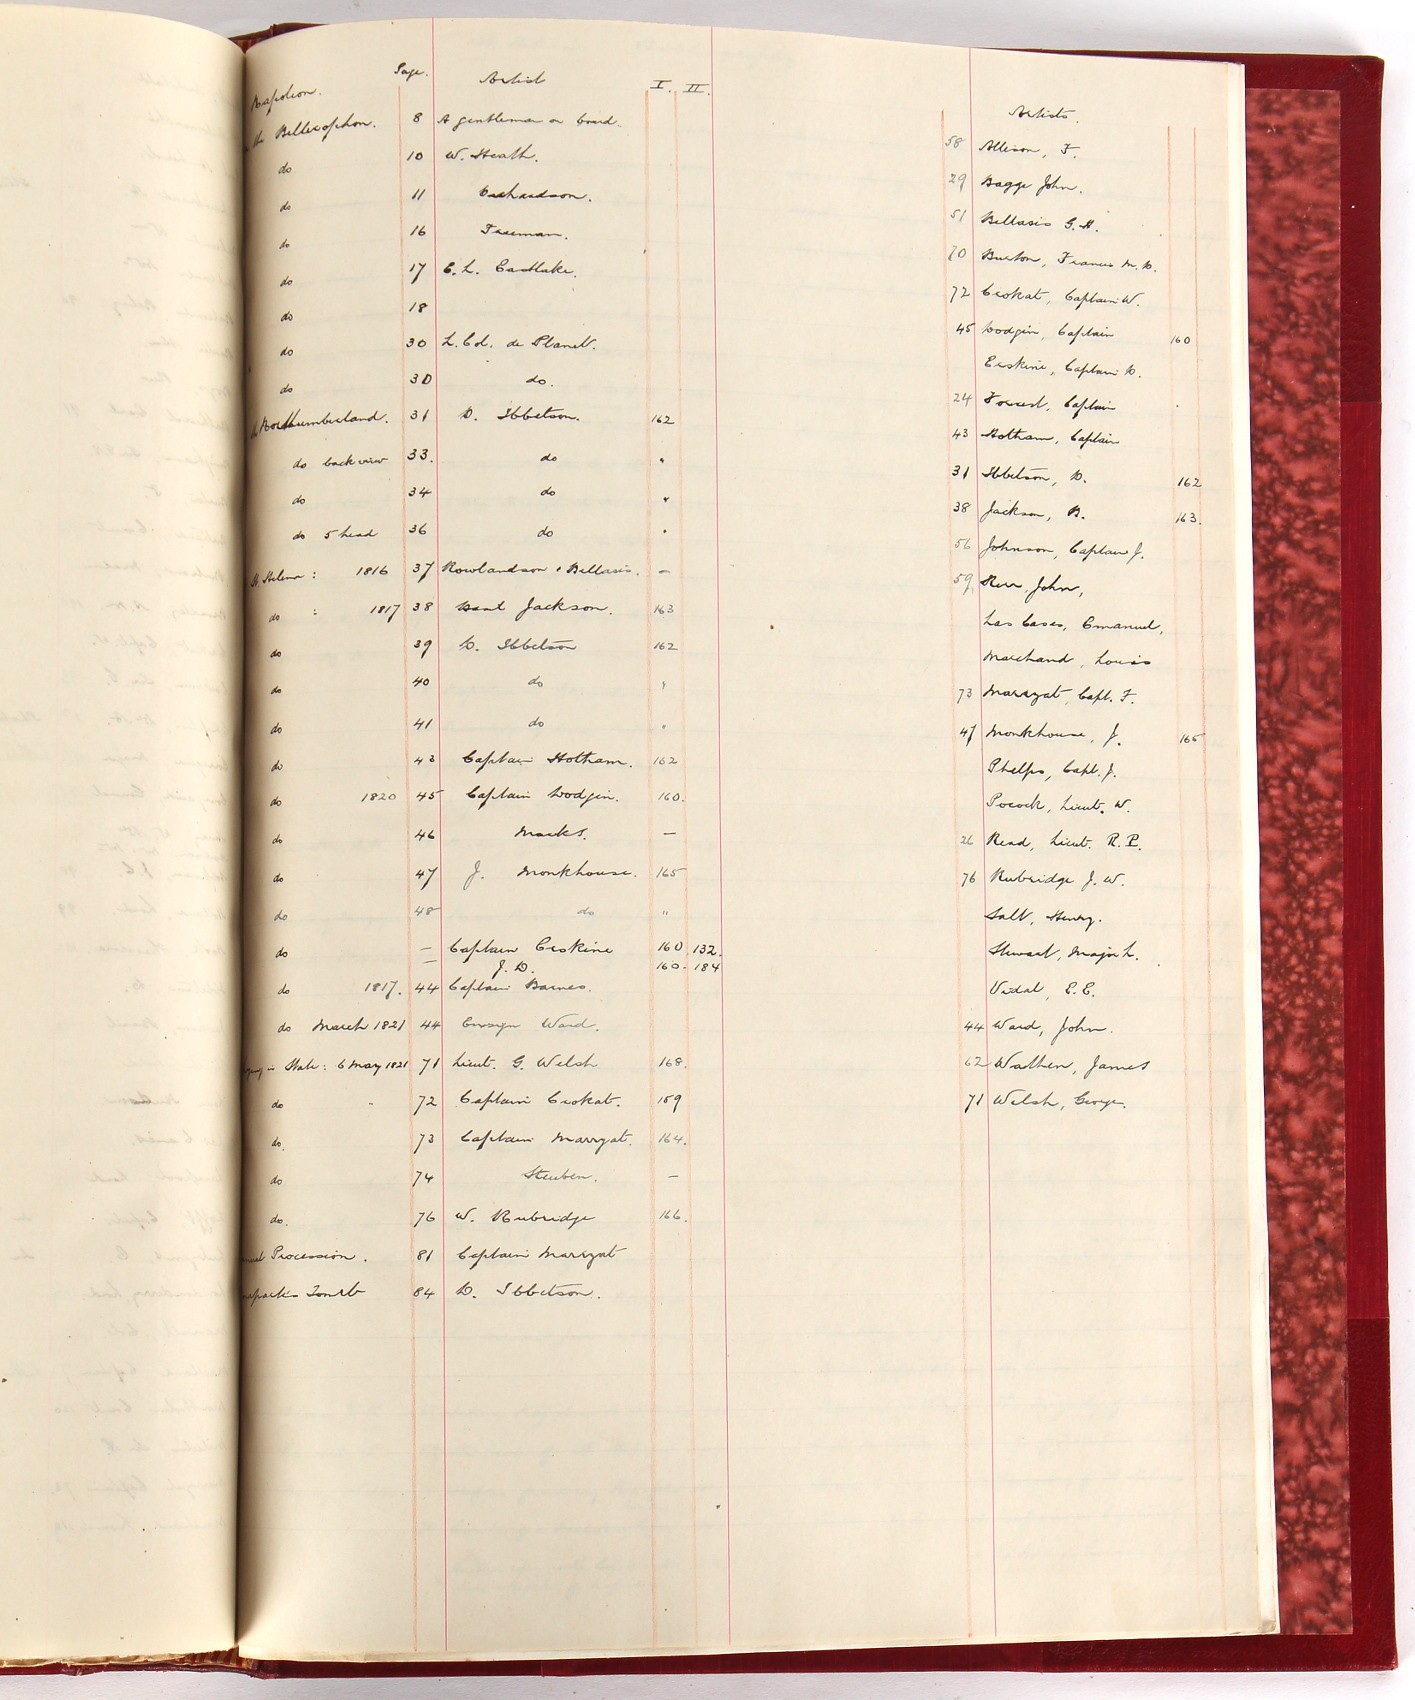 Napoleon. Page. Artist I. II.
the Bellerophon. 8 A gentleman on board.
do 10 W. Heath.
do 11 Richardson.
do 16 Freeman.
do 17 C. L. Eastlake.
do 18
do 30 L. Col. de Planet.
do 30 do.
Northumberland. 31 D. Ibbetson. 162
do back view 33. do "
do 34 do "
do 5 head 36 do "
St. Helena : 1816 37 Rowlandson & Bellasis. —
do : 1817 38 Basil Jackson. 163
do 39 D. Ibbetson 162
do 40 do "
do 41 do "
do 43 Captain Hotham. 162
do 1820 45 Captain Dodgin. 160.
do 46 Marks. —
do 47 J. Monkhouse. 165
do 48 do "
do — Captain Erskine 160 132.
— J. D. 160. 184
do 1817. 44 Captain Barnes.
do March 1821 44 Ensign Ward.
Lying in State : 6 May 1821 71 Lieut. G. Welsh 168.
do " 72 Captain Crokat. 159
do. 73 Captain Marryat. 164.
do 74 Steuben. —
do. 76 W. Rubridge 166.
Procession. 81 Captain Marryat
Tomb 84 D. Ibbetson.
Artists.
58 Allison, F.
29 Bagge John.
51 Bellasis G. H.
70 Burton, Francis M. D.
72 Crokat, Captain W.
45 Dodgin, Captain 160
Erskine, Captain D.
24 Forrest, Captain
43 Hotham, Captain
31 Ibbetson, D. 162
38 Jackson, B. 163.
56 Johnson, Captain J.
59, Kerr, John,
Las Cases, Emanuel,
Marchand, Louis
73 Marryat, Capt. F.
47 Monkhouse, J. 165
Phelps, Capt. J.
Pocock, Lieut. W.
26 Read, Lieut. R. P.
76 Rubridge J. W.
Salt, Henry.
Stewart, Major L.
Vidal, E. E.
44 Ward, John.
62 Wathen, James
71 Welsh, George.